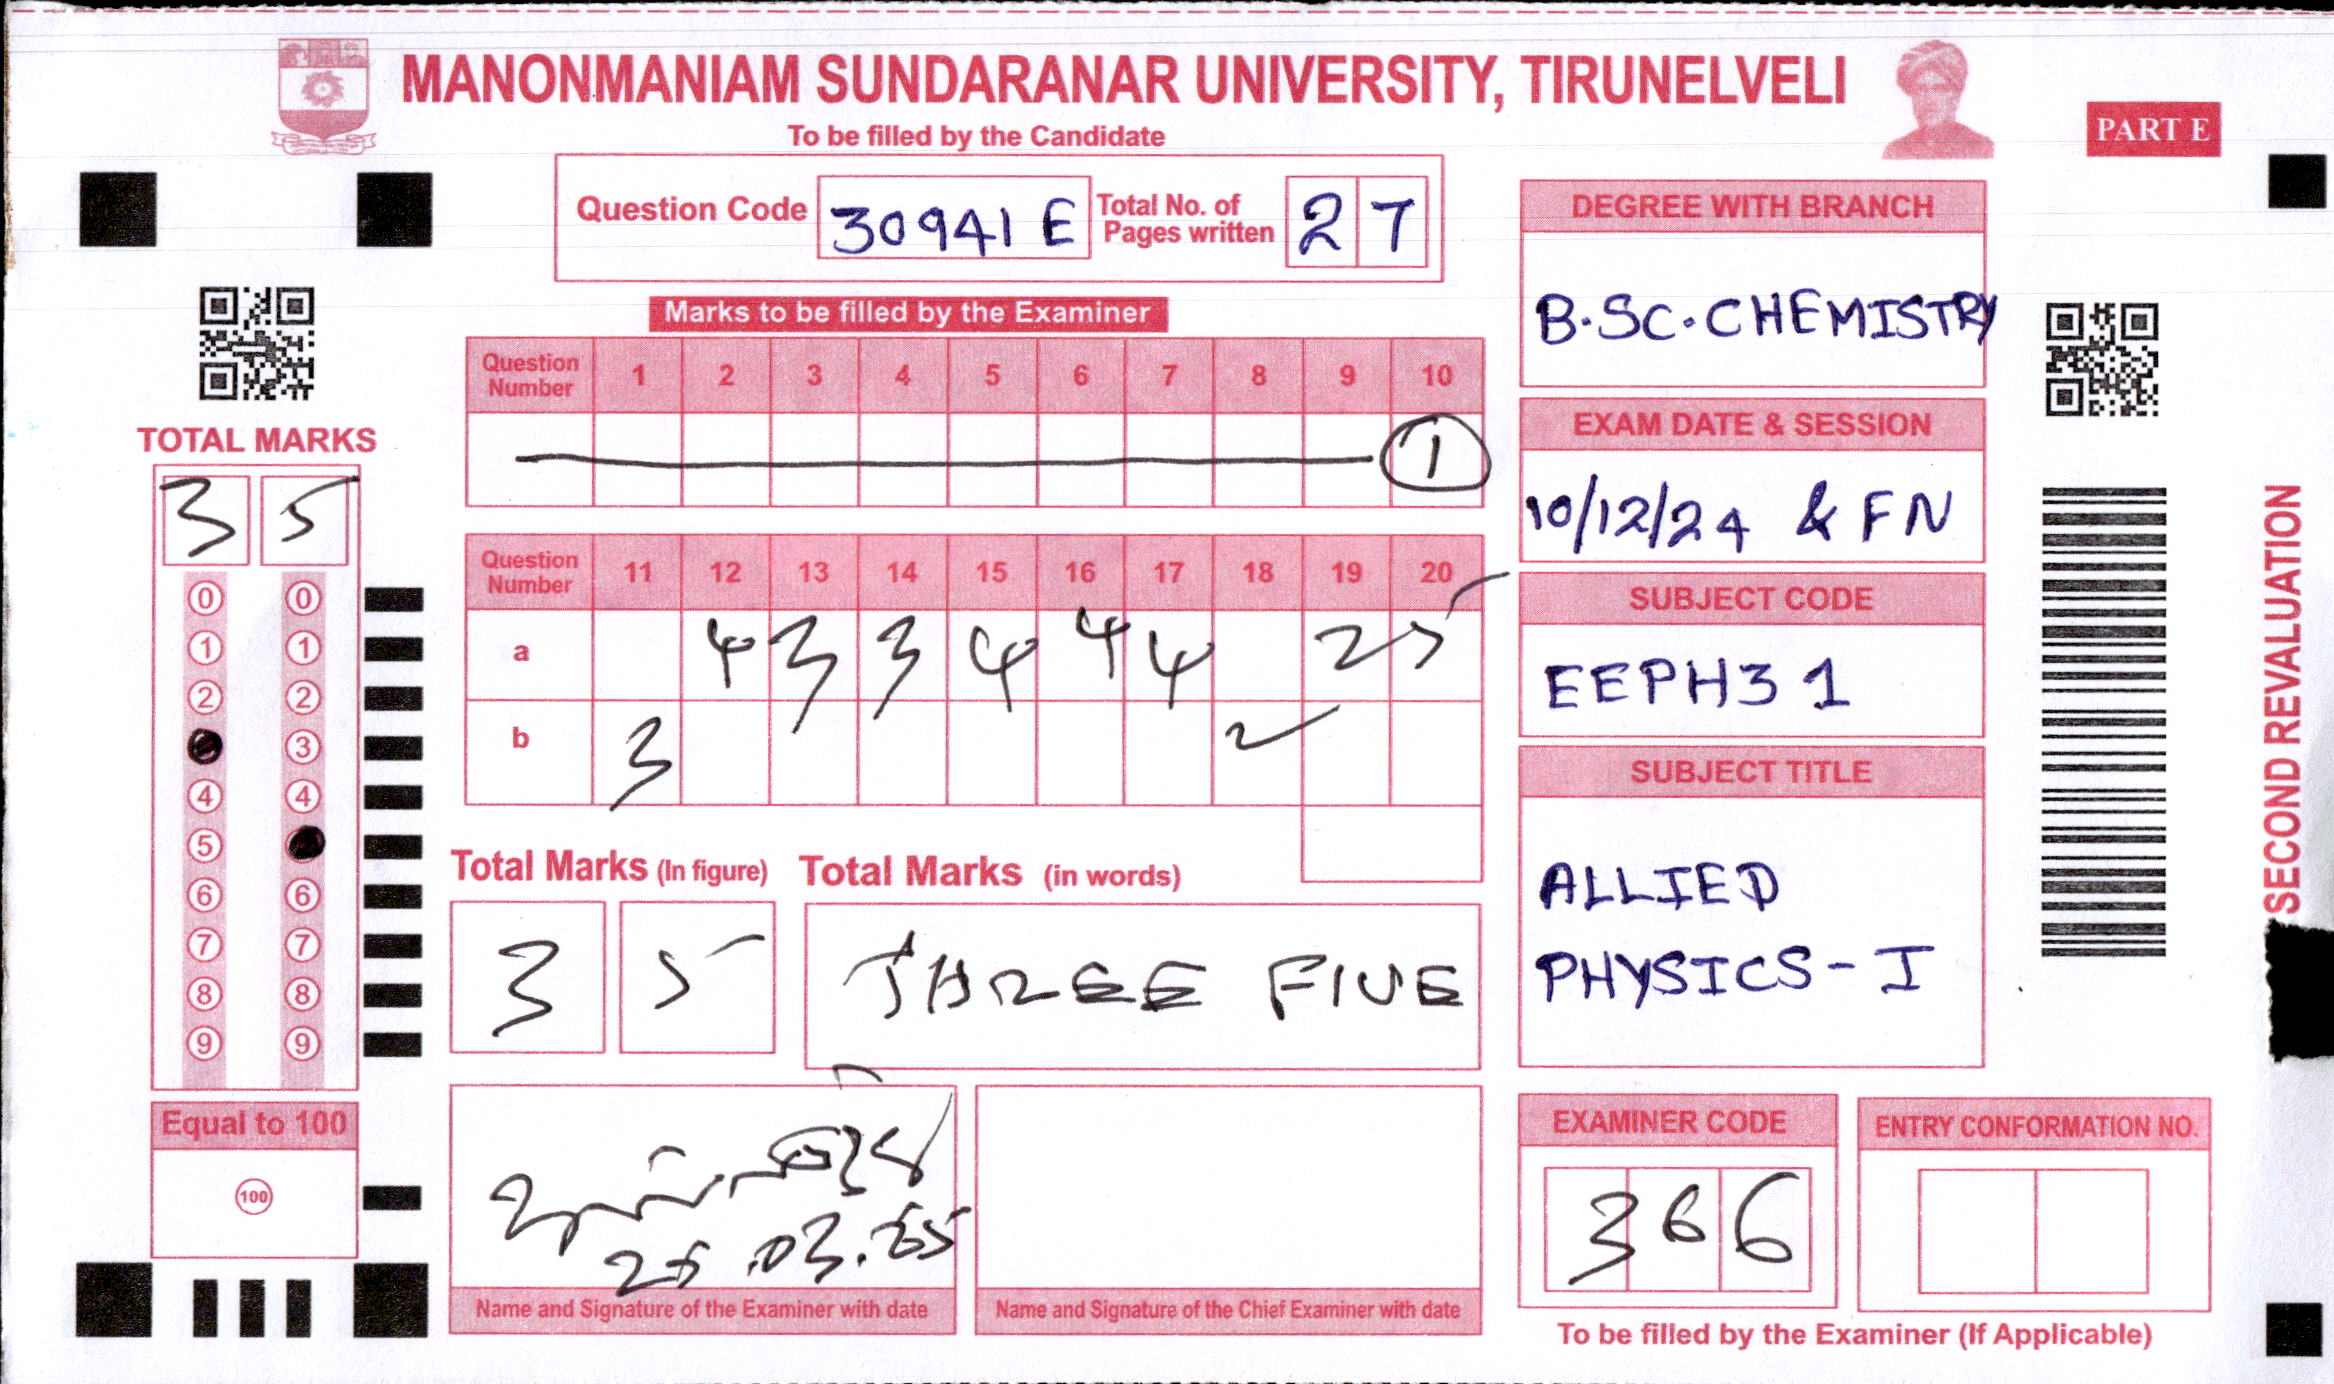 MANONMANIAM SUNDARANAR UNIVERSITY, TIRUNELVELI
PART E
To be filled by the Candidate
Question Code 30941 E Total No. of Pages written 27
Marks to be filled by the Examiner
Question Number 1 2 3 4 5 6 7 8 9 10
1
Question Number 11 12 13 14 15 16 17 18 19 20
a 4 3 3 4 4 4 2 5
b 3 2
TOTAL MARKS
3 5
0 0
1 1
2 2
3
4 4
5
6 6
7 7
8 8
9 9
Equal to 100
100
Total Marks (In figure) Total Marks (in words)
3 5 THREE FIVE
25.03.25
Name and Signature of the Examiner with date
Name and Signature of the Chief Examiner with date
DEGREE WITH BRANCH
B.SC.CHEMISTRY
EXAM DATE & SESSION
10/12/24 & FN
SUBJECT CODE
EEPH31
SUBJECT TITLE
ALLIED
PHYSICS-I
EXAMINER CODE
366
ENTRY CONFORMATION NO.
To be filled by the Examiner (If Applicable)
SECOND REVALUATION